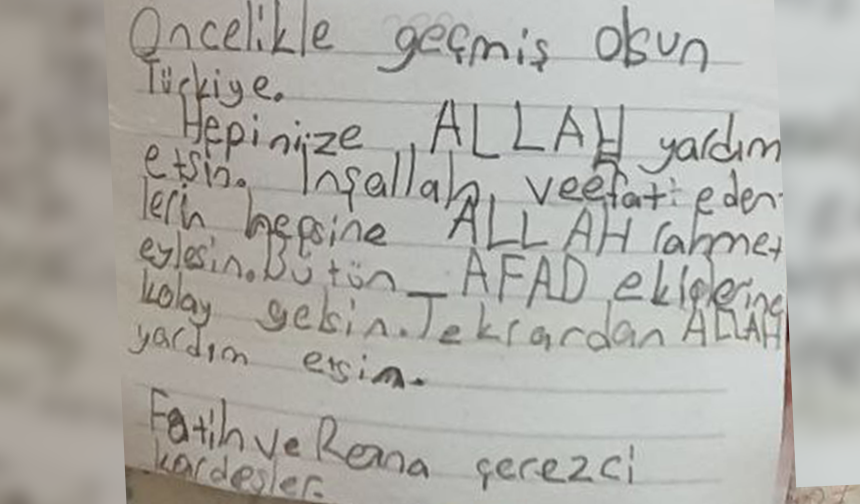 Öncelikle geçmiş olsun
Türkiye.
Hepinize ALLAH yardım
etsin. İnşallah veefati eden
lerin hepsine ALLAH rahmet
eylesin. Bütün AFAD ekiplerine
kolay gelsin. Tekrardan ALLAH
yardım etsin.
Fatih ve Rana çerezci
kardeşler.